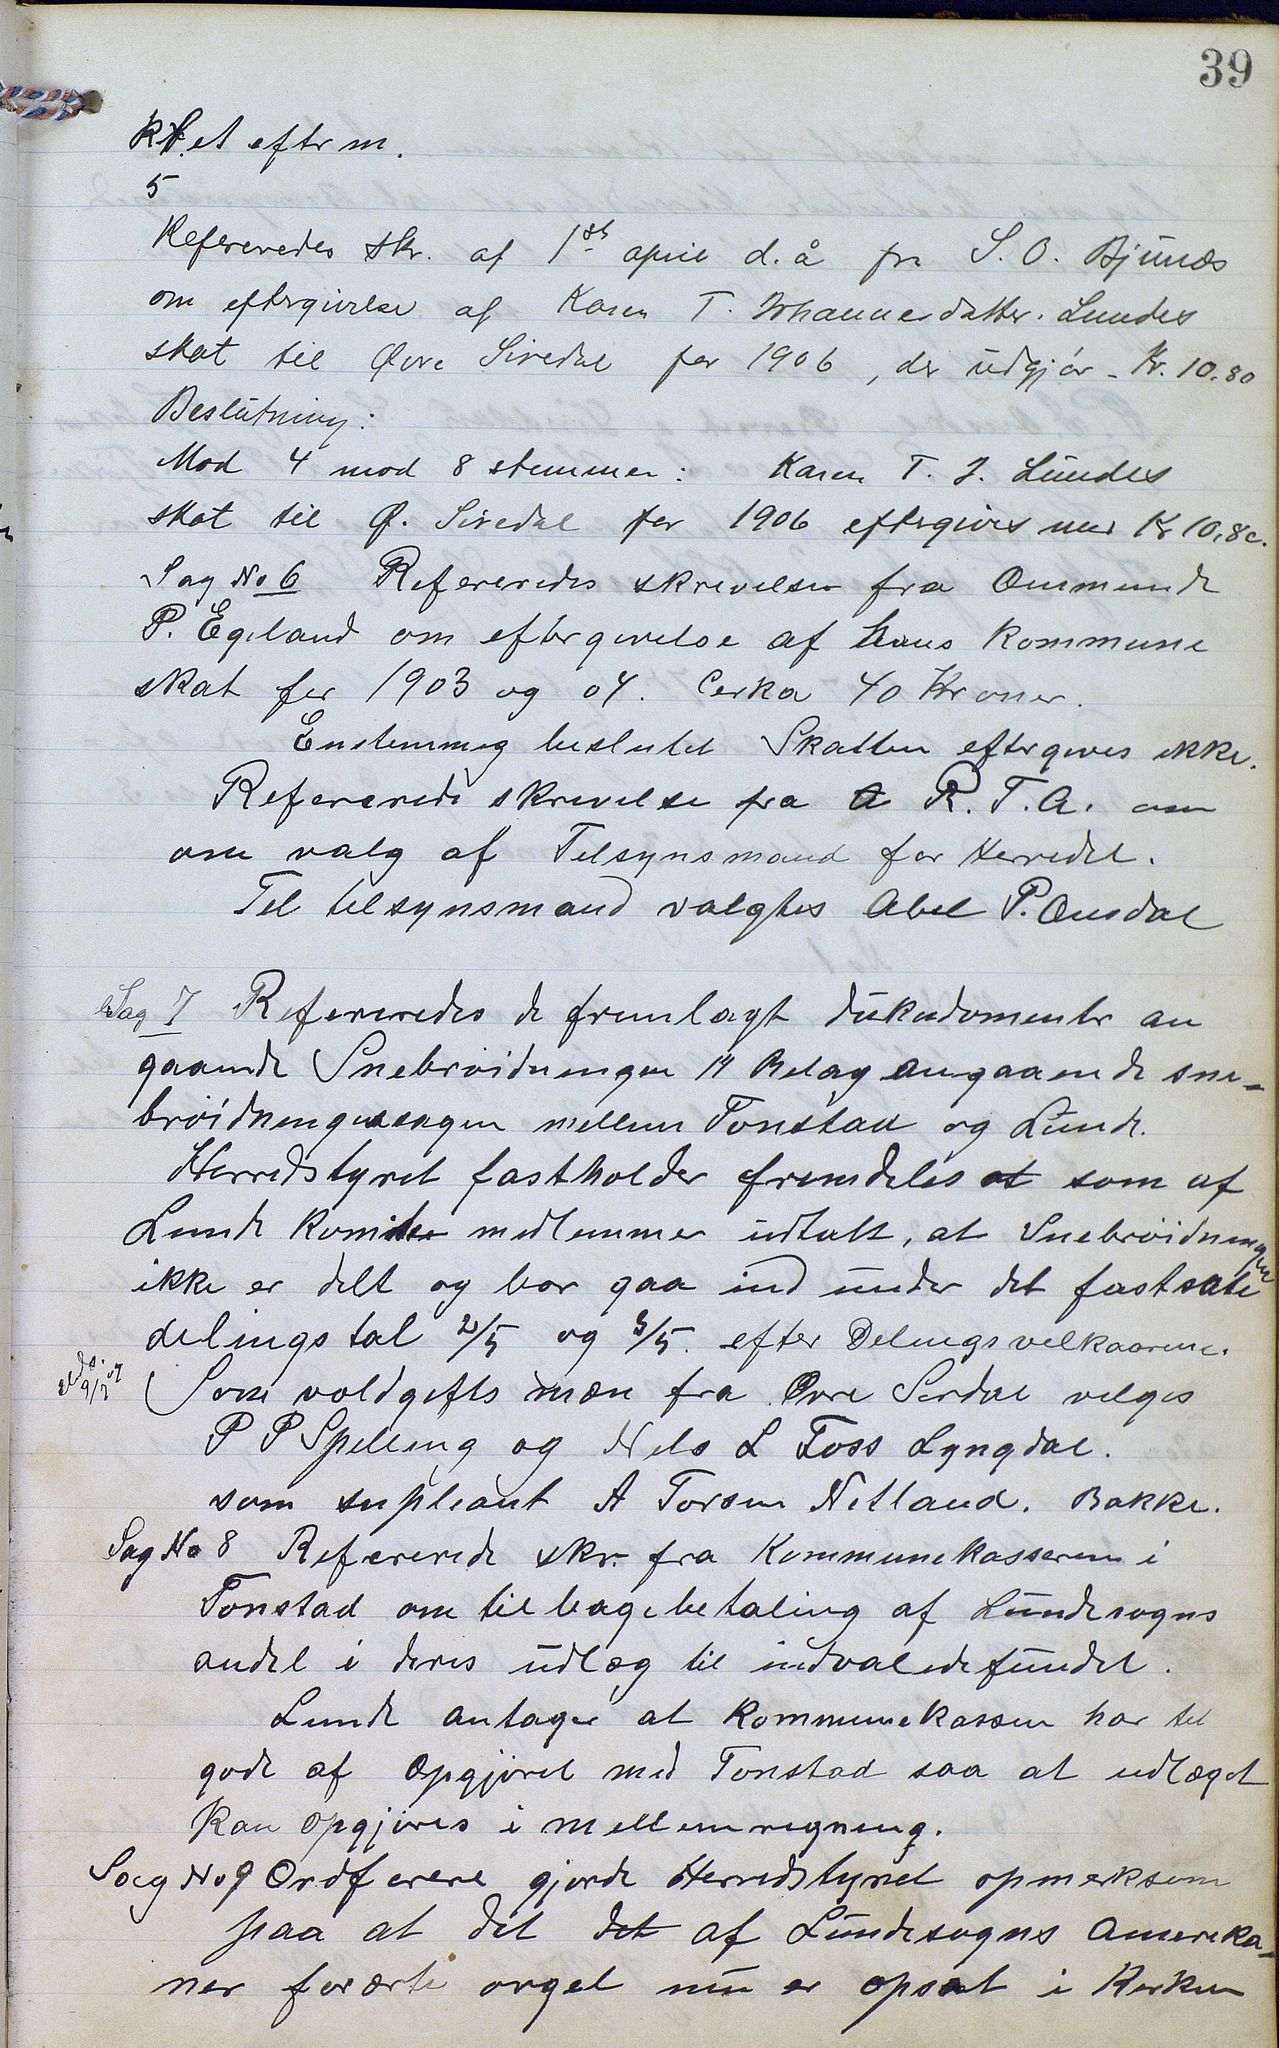 39
Kl. et eftr m.
5
Refereredes skr. af 1ste april d. å fra S. O. Bjunes
om eftergivelse af Karen T. Johannesdatter. Lundes
skat til Øvre Siredal for 1906, der udgjør - Kr. 10.80
Beslutning:
Mod 4 mod 8 stemmer: Karen T. J. Lundes
skat til Ø. Siredal for 1906 eftergives med Kr 10,80.
Sag No 6 Refereredes skrivelse fra Ommund
P. Egeland om eftergivelse af hans Kommune
skat for 1903 og 04. Cerka 40 Kroner.
Enstemmig beslutet Skatten eftergives ikke.
Refererede skrivelse fra A R. T. A. om
om valg af Telsynsmand for Herredet.
Tel telsynsmand valgtes Abel P. Ousdal
Sag 7 Refereredes de fremlagt dukudomenter an
gaaende Snebrøidningen 14 Belag angaaende sne-
brøidningssagen mellem Tonstad og Lunde.
Herredstyret fastholder fremdeles at som af
Lunde Komite medlemmer udtalt, at Snebrøidningen
ikke er delt og bør gaa ind under det fastsate
delingstal 2/5 og 3/5. efter Delingsvelkaarene.
9/7 07
Som voldgifts mæn fra Øvre Serdal velges
P P Spelling og Nels L Foss Lyngdal.
som supleant A Torsen Netland. Bakke.
Sag No 8 Refererede skr. fra Kommunekasseren i
Tonstad om tilbagebetaling af Lundesogns
andel i deres udlæg til indvaledefundet.
Lunde antager at Kommunekassen har tel
gode af Opgjøret med Tonstad saa at udlæget
kan opgjøres i mellemregning.
Sag No 9 Ordførere gjorde Herredstyret opmerksom
paa at det det af Lundesogns Amereka-
ner forærte orgel nu er opsat i Kerken